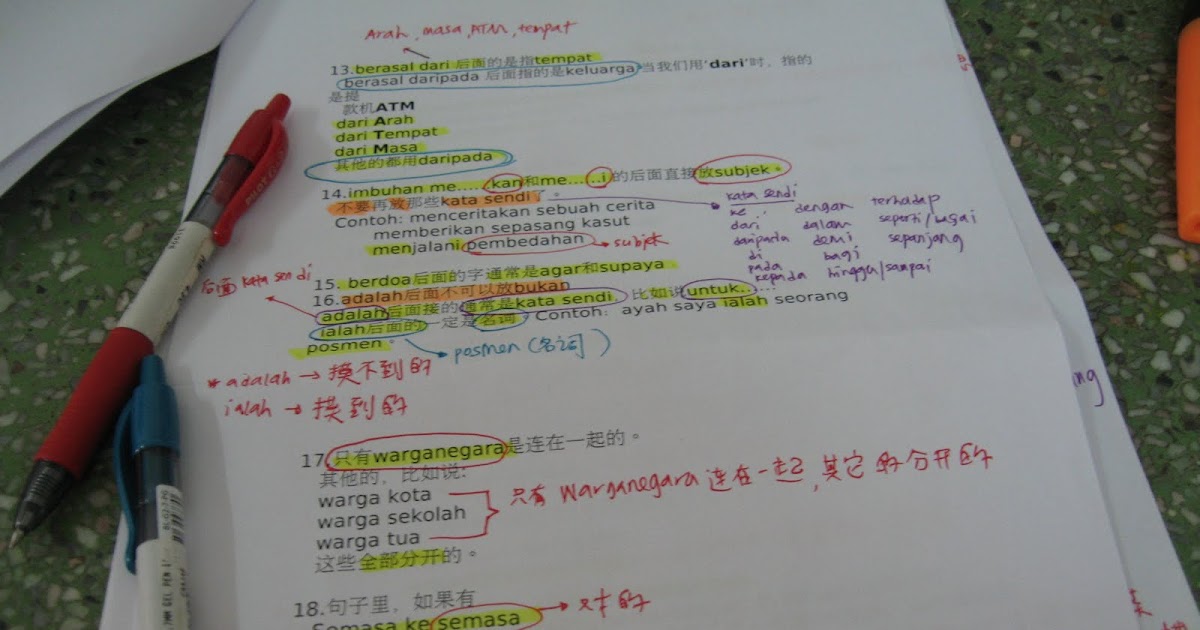 Arah, masa, ATM, tempat
13.berasal dari 后面的是指tempat
berasal daripada 后面指的是keluarga 当我们用'dari'时，指的
是提
款机ATM
dari Arah
dari Tempat
dari Masa
其他的都用daripada
14.imbuhan me......kan和me......i的后面直接放subjek。
不要再放那些kata sendi了。
Contoh: menceritakan sebuah cerita
memberikan sepasang kasut
menjalani pembedahan
subjek
kata sendi
ke dengan terhadap
dari dalam seperti/bagai
daripada demi sepanjang
di bagi
pada
kepada hingga/sampai
15. berdoa后面的字通常是agar和supaya
后面 kata sendi
16.adalah后面不可以放bukan
adalah后面接的通常是kata sendi 比如说untuk.....
ialah后面的一定是名词 Contoh: ayah saya ialah seorang
posmen。
posmen (名词)
* adalah → 摸不到的
ialah → 摸到的
ing
17.只有warganegara是连在一起的。
其他的，比如说:
warga kota
warga sekolah
warga tua
只有 warganegara 连在一起,其它的分开的
这些全部分开的。
18.句子里，如果有
Semasa ke semasa
对的